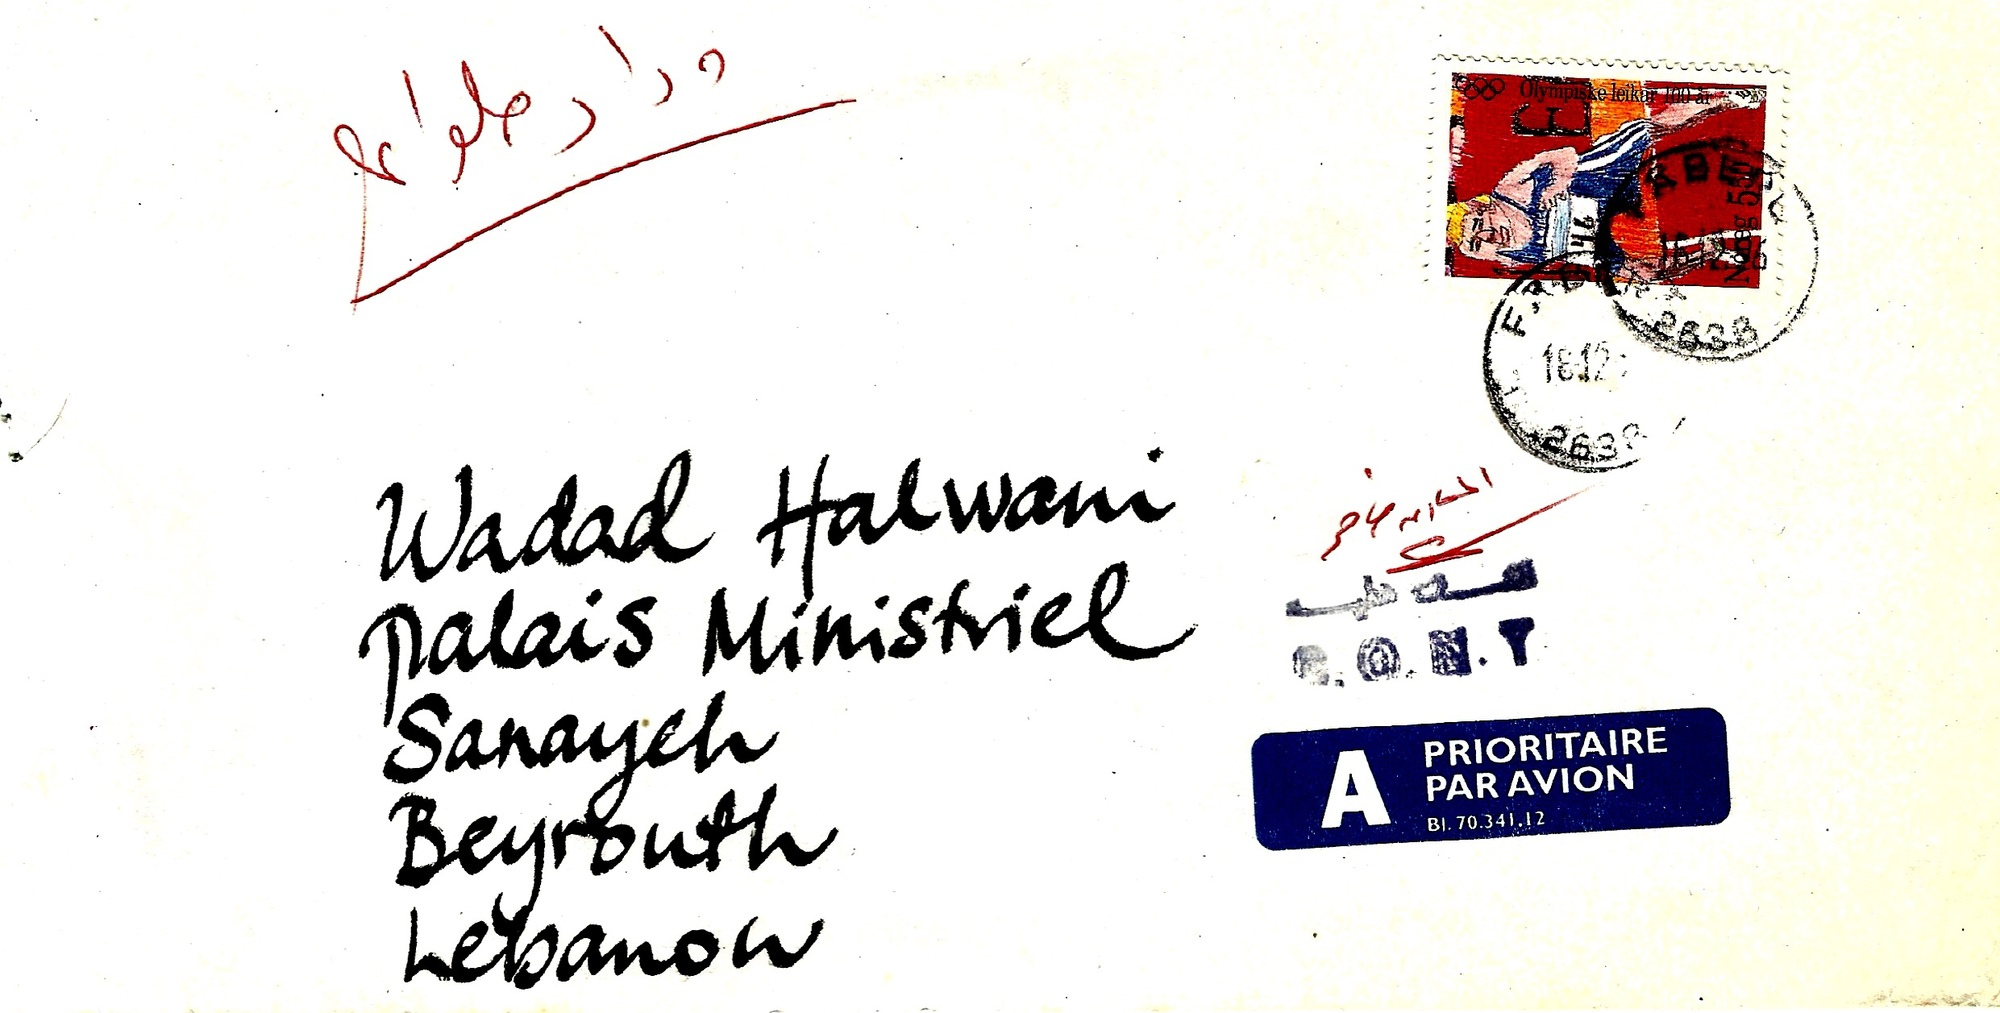 وداد حلواني
Olympiske leikar 100 år
Noreg 550
146
2638
18.12
2638
Wadad Halwani
Palais Ministriel
Sanayeh
Beyrouth
Lebanon
A PRIORITAIRE
PAR AVION
Bl. 70.341.12